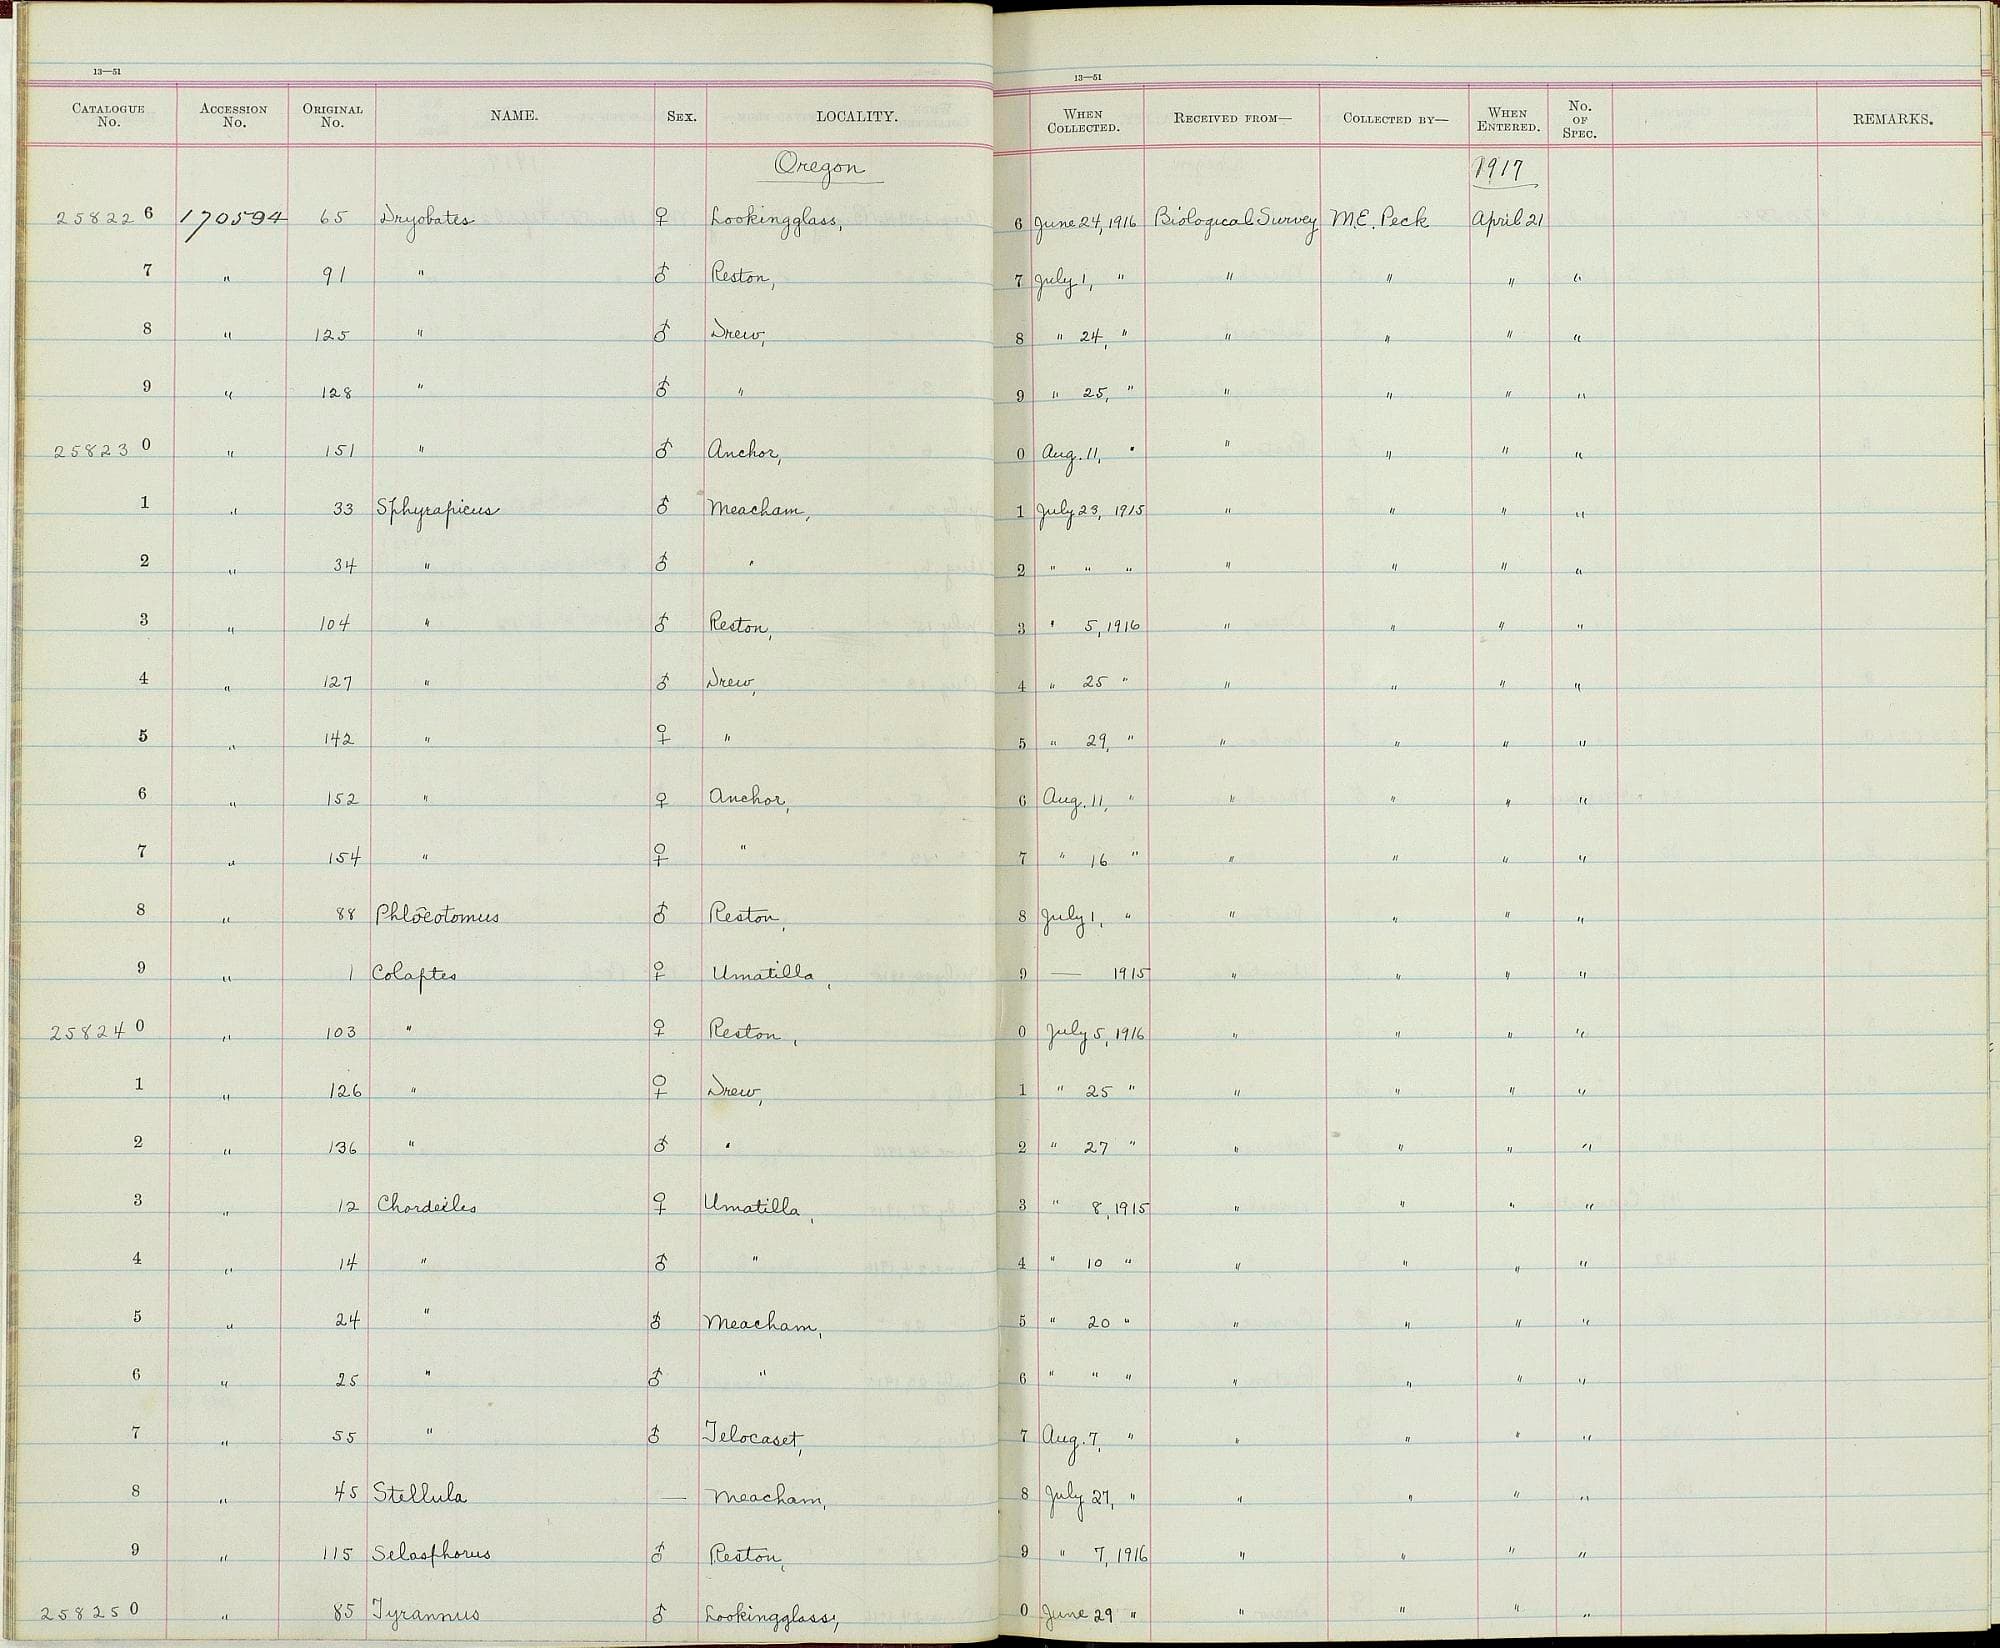 13—51
13—51
CATALOGUE No. ACCESSION No. ORIGINAL No. NAME. SEX. LOCALITY. WHEN COLLECTED. RECEIVED FROM— COLLECTED BY— WHEN ENTERED. No. OF SPEC. REMARKS.
Oregon 1917
258226 170594 65 Dryobates ♀ Lookingglass, 6 June 24, 1916 Biological Survey M.E. Peck April 21
7 " 91 " ♂ Reston, 7 July 1, " " " " "
8 " 125 " ♂ Drew, 8 " 24, " " " " "
9 " 128 " ♂ " 9 " 25, " " " " "
258230 " 151 " ♂ Anchor, 0 Aug. 11, " " " " "
1 " 33 Sphyrapicus ♂ Meacham, 1 July 23, 1915 " " " "
2 " 34 " ♂ " 2 " " " " " " "
3 " 104 " ♂ Reston, 3 " 5, 1916 " " " "
4 " 127 " ♂ Drew, 4 " 25 " " " " "
5 " 142 " ♀ " 5 " 29, " " " " "
6 " 152 " ♀ Anchor, 6 Aug. 11, " " " " "
7 " 154 " ♀ " 7 " 16 " " " " "
8 " 88 Phlœotomus ♂ Reston, 8 July 1, " " " " "
9 " 1 Colaptes ♀ Umatilla, 9 — 1915 " " " "
258240 " 103 " ♀ Reston, 0 July 5, 1916 " " " "
1 " 126 " ♀ Drew, 1 " 25 " " " " "
2 " 136 " ♂ " 2 " 27 " " " " "
3 " 12 Chordeiles ♀ Umatilla, 3 " 8, 1915 " " " "
4 " 14 " ♂ " 4 " 10 " " " " "
5 " 24 " ♂ Meacham, 5 " 20 " " " " "
6 " 25 " ♂ " 6 " " " " " " "
7 " 55 " ♂ Telocaset, 7 Aug. 7, " " " " "
8 " 45 Stellula — Meacham, 8 July 27, " " " " "
9 " 115 Selasphorus ♂ Reston, 9 " 7, 1916 " " " "
258250 " 85 Tyrannus ♂ Lookingglass, 0 June 29 " " " " "